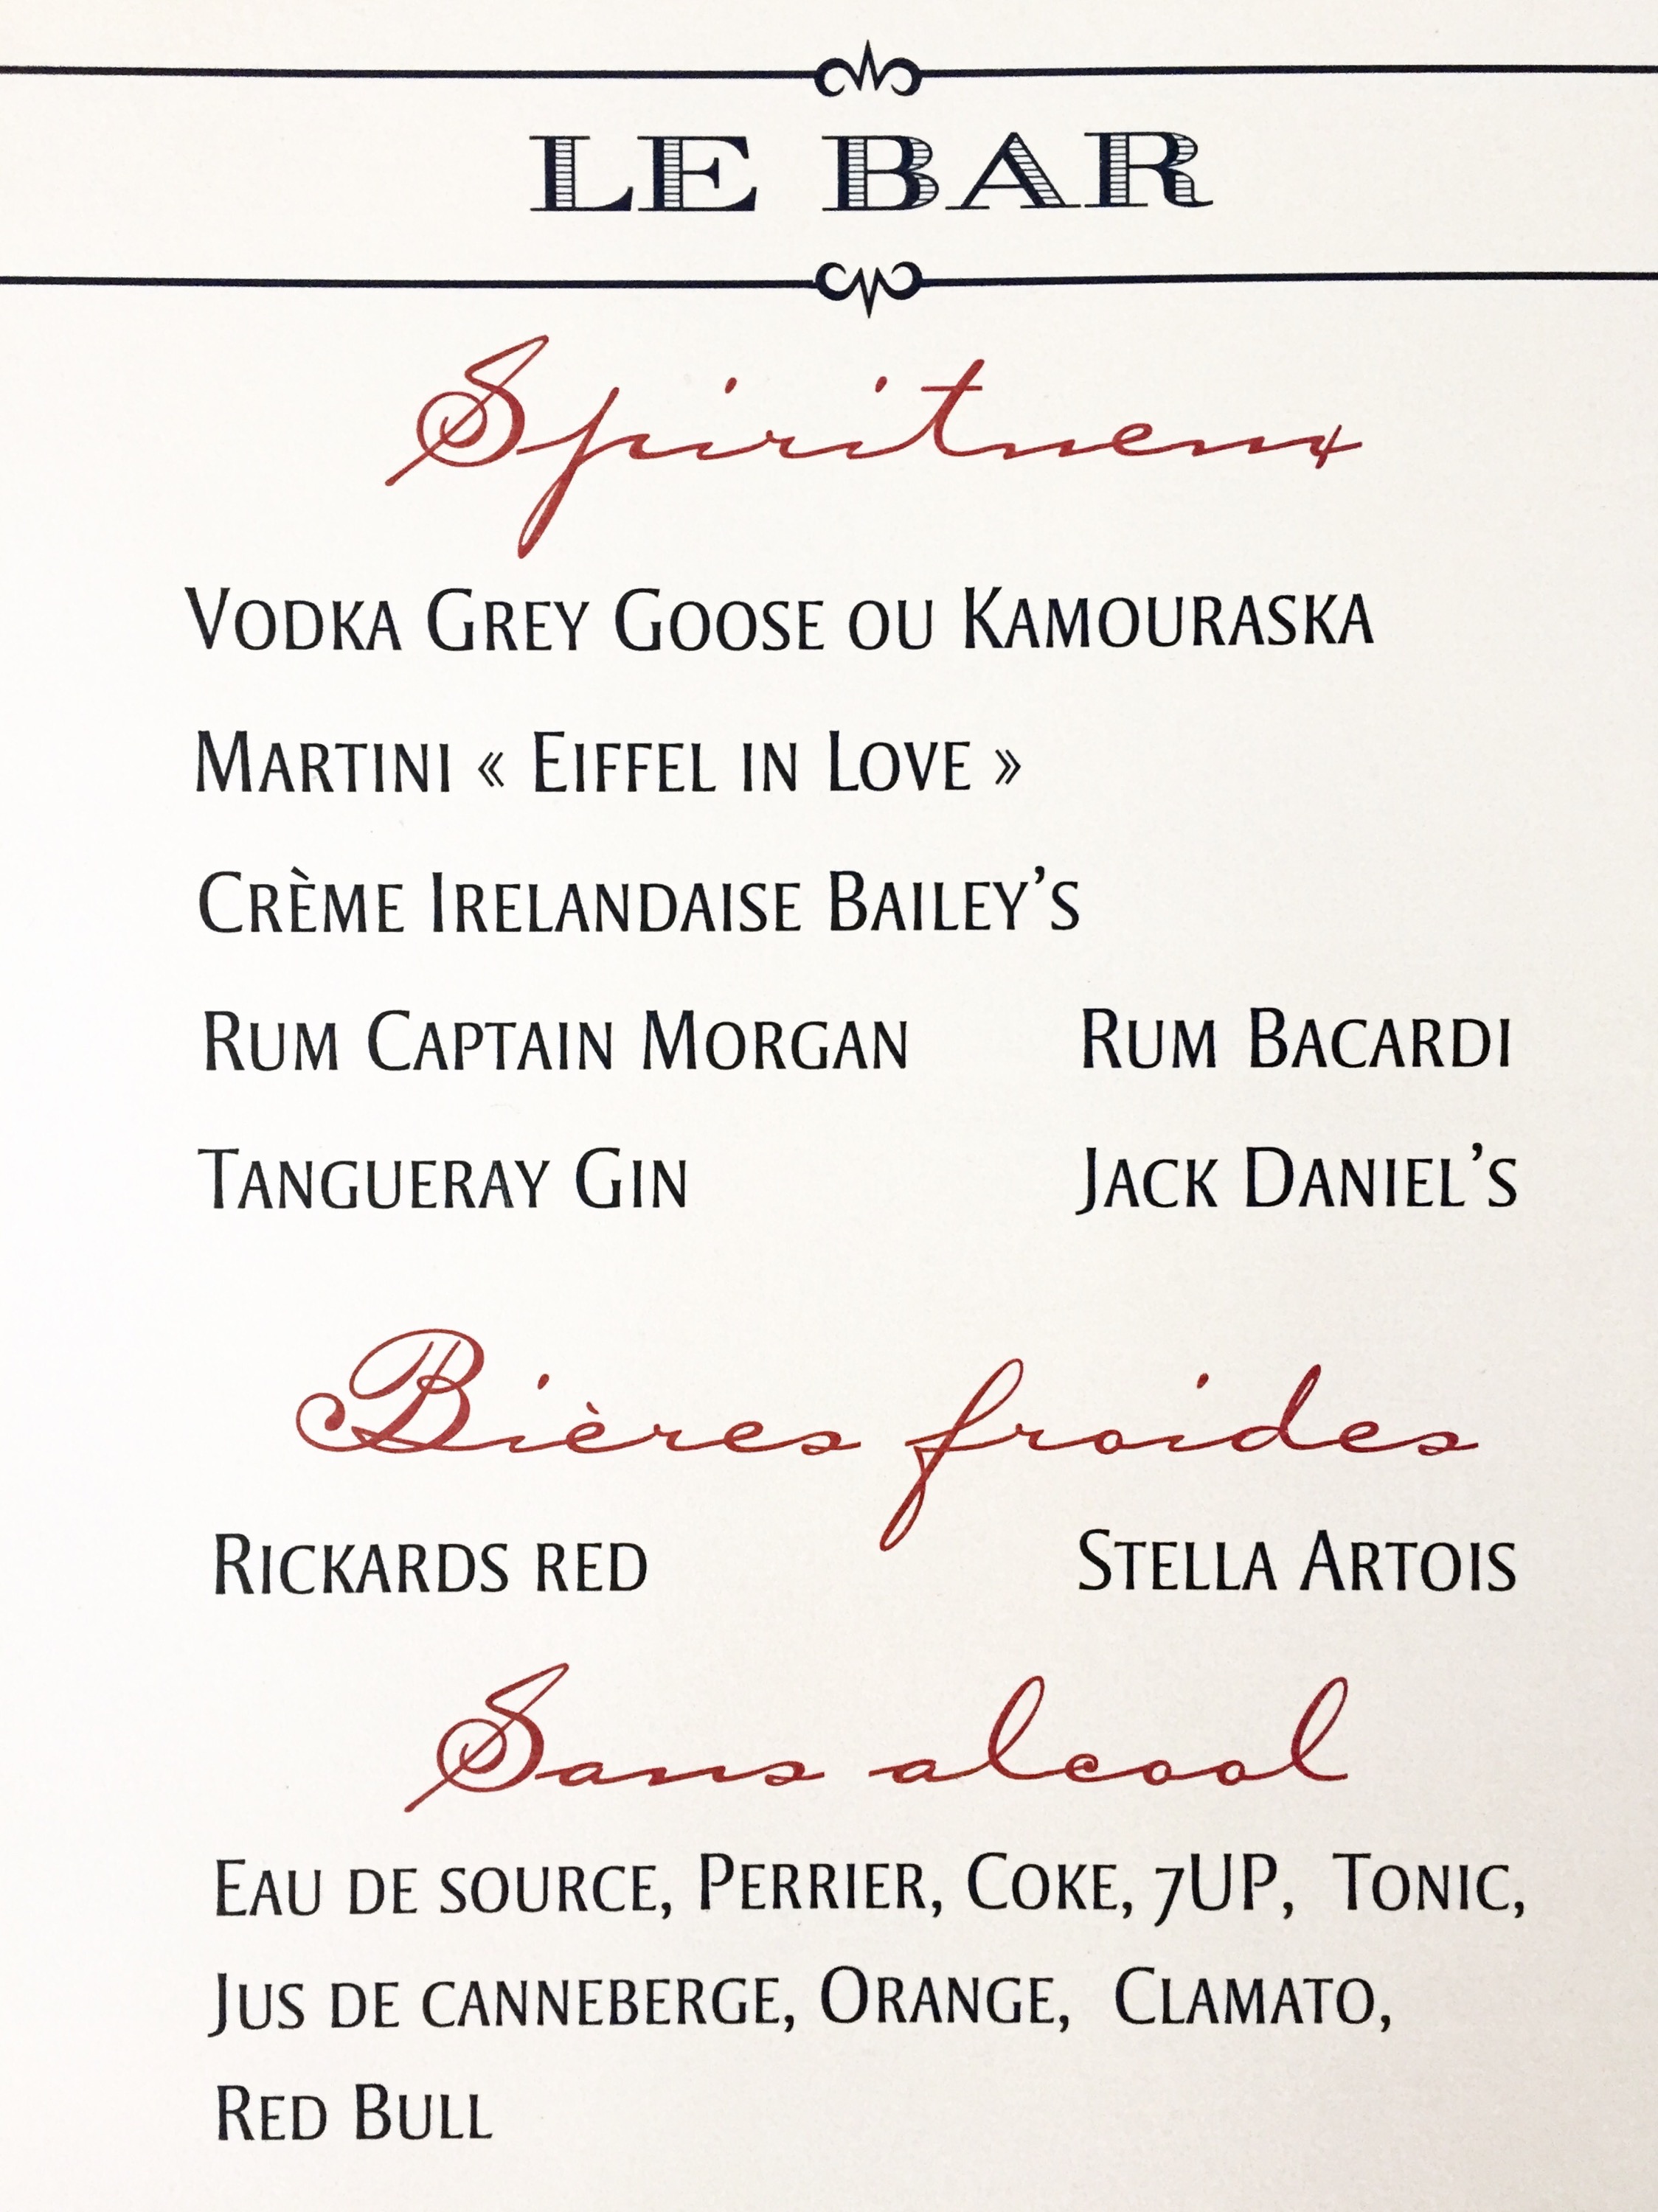 LE BAR
Spiritueux
VODKA GREY GOOSE OU KAMOURASKA
MARTINI « EIFFEL IN LOVE »
CRÈME IRELANDAISE BAILEY’S
RUM CAPTAIN MORGAN RUM BACARDI
TANGUERAY GIN JACK DANIEL’S
Bières froides
RICKARDS RED STELLA ARTOIS
Sans alcool
EAU DE SOURCE, PERRIER, COKE, 7UP, TONIC,
JUS DE CANNEBERGE, ORANGE, CLAMATO,
RED BULL